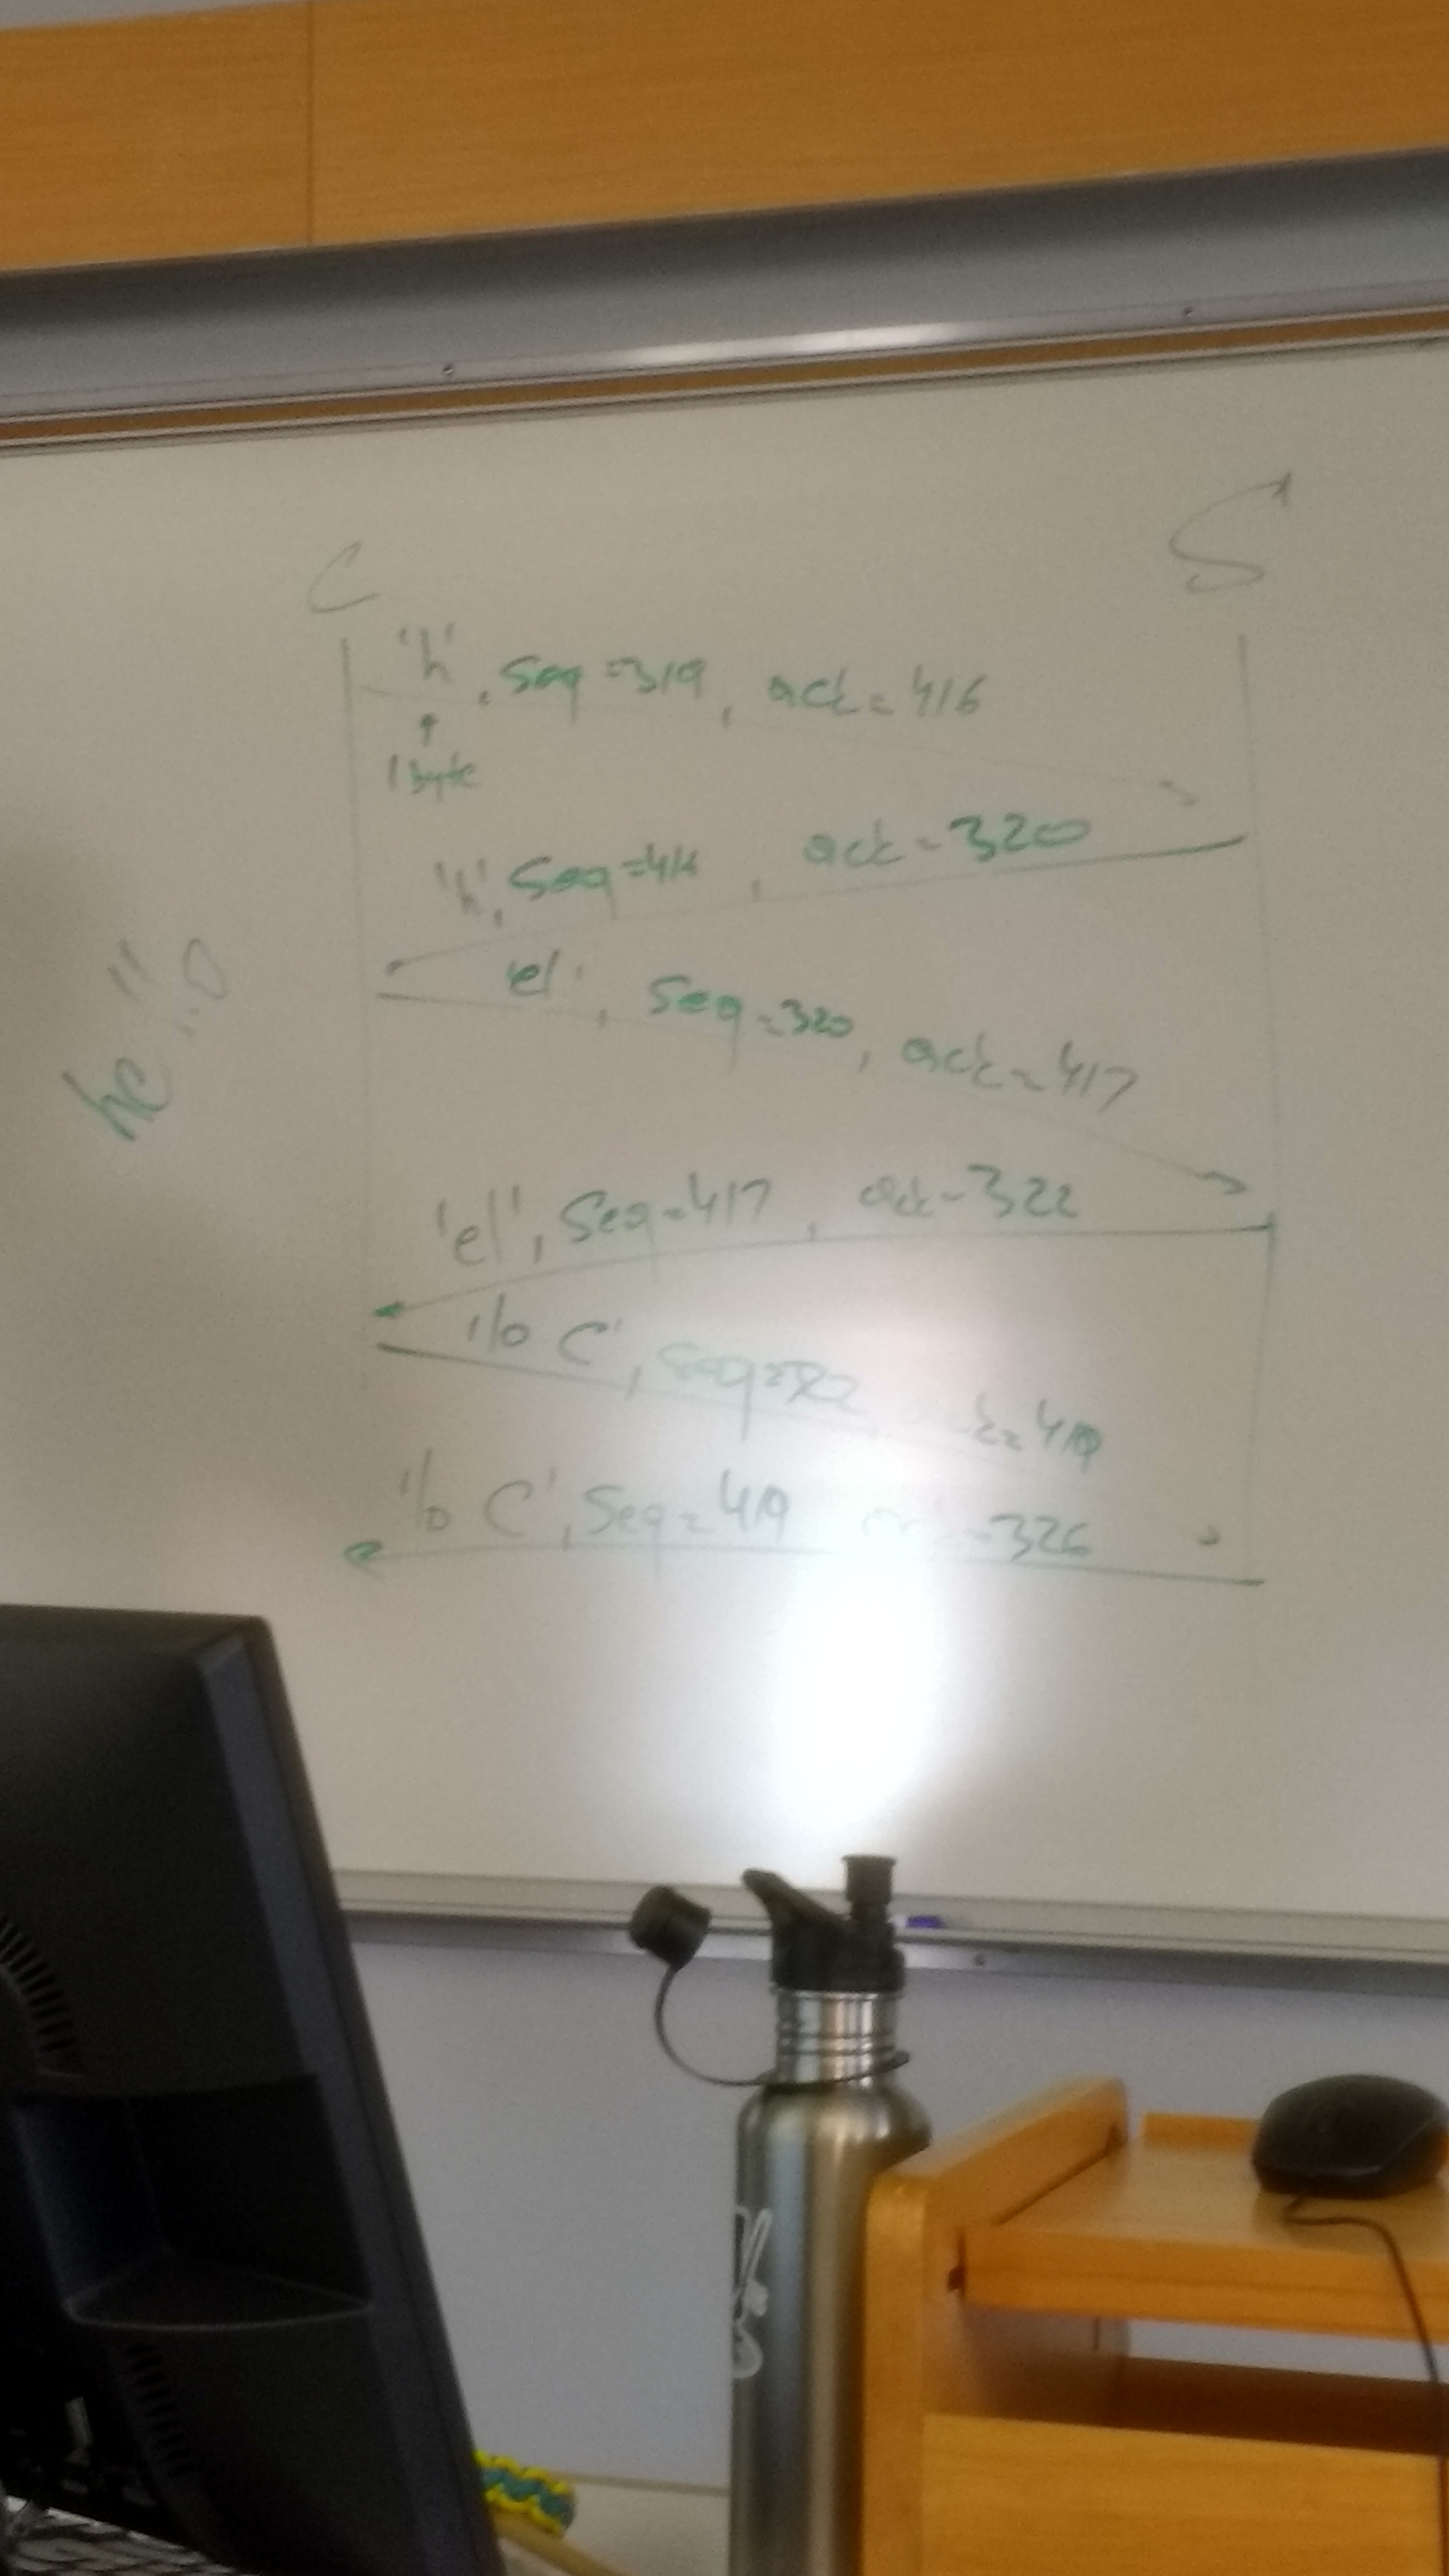 C S
'h', Seq=319, ack=416
1 byte
'h', Seq=416, ack=320
'el', Seq=320, ack=417
he
'el', Seq=417, ack=322
'lo C', Seq=322, ack=419
'lo C', Seq=419 ack=326